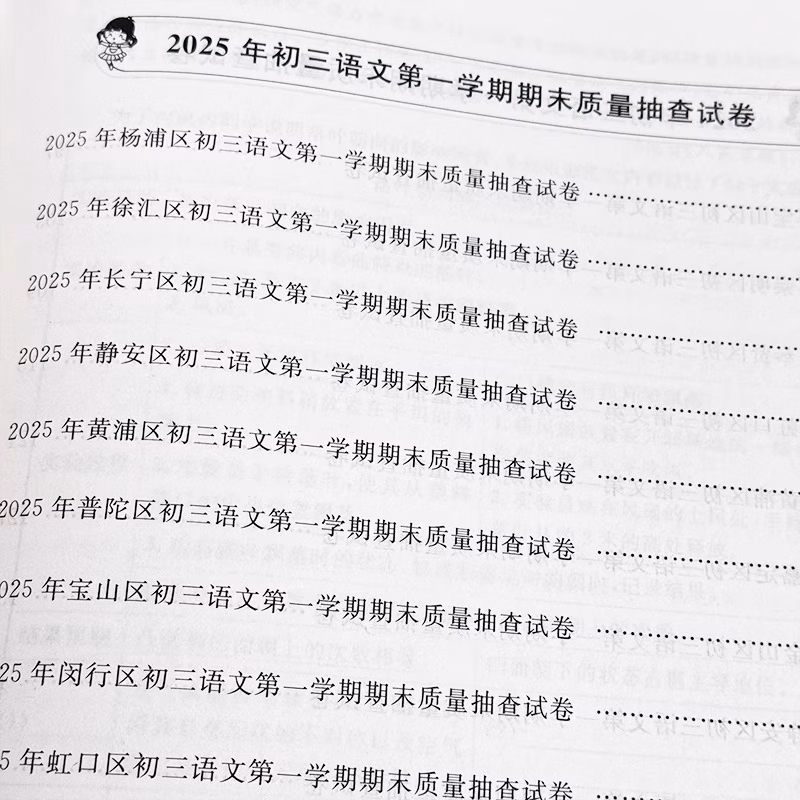 2025年初三语文第一学期期末质量抽查试卷
2025年杨浦区初三语文第一学期期末质量抽查试卷
2025年徐汇区初三语文第一学期期末质量抽查试卷
2025年长宁区初三语文第一学期期末质量抽查试卷
2025年静安区初三语文第一学期期末质量抽查试卷
2025年黄浦区初三语文第一学期期末质量抽查试卷
2025年普陀区初三语文第一学期期末质量抽查试卷
025年宝山区初三语文第一学期期末质量抽查试卷
25年闵行区初三语文第一学期期末质量抽查试卷
5年虹口区初三语文第一学期期末质量抽查试卷